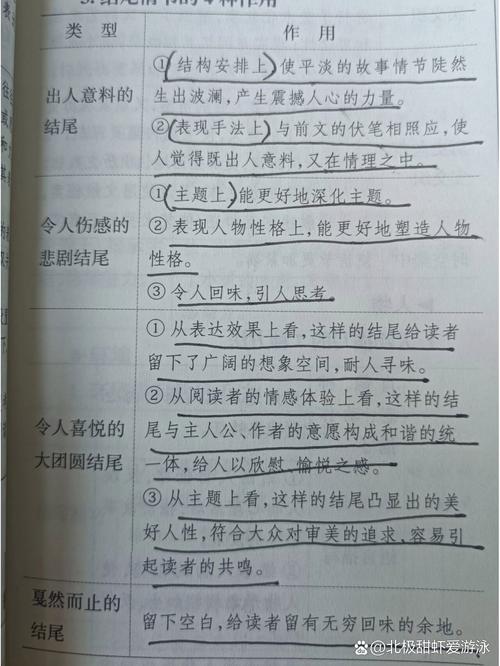 3.结尾情节的4种作用
类 型
作 用
出人意料的
结尾
①(结构安排上)使平淡的故事情节陡然
生出波澜,产生震撼人心的力量。
②(表现手法上)与前文的伏笔相照应,使
人觉得既出人意料,又在情理之中。
令人伤感的
悲剧结尾
①(主题上)能更好地深化主题。
②表现人物性格上,能更好地塑造人物
性格。
③令人回味,引人思考
令人喜悦的
大团圆结尾
①从表达效果上看,这样的结尾给读者
留下了广阔的想象空间,耐人寻味。
②从阅读者的情感体验上看,这样的结
尾与主人公、作者的意愿构成和谐的统
一体,给人以欣慰、愉悦之感。
③从主题上看,这样的结尾凸显出的美
好人性,符合大众对审美的追求,容易引
起读者的共鸣。
戛然而止的
结尾
留下空白,给读者留有无穷回味的余地。
头条 @北极甜虾爱游泳